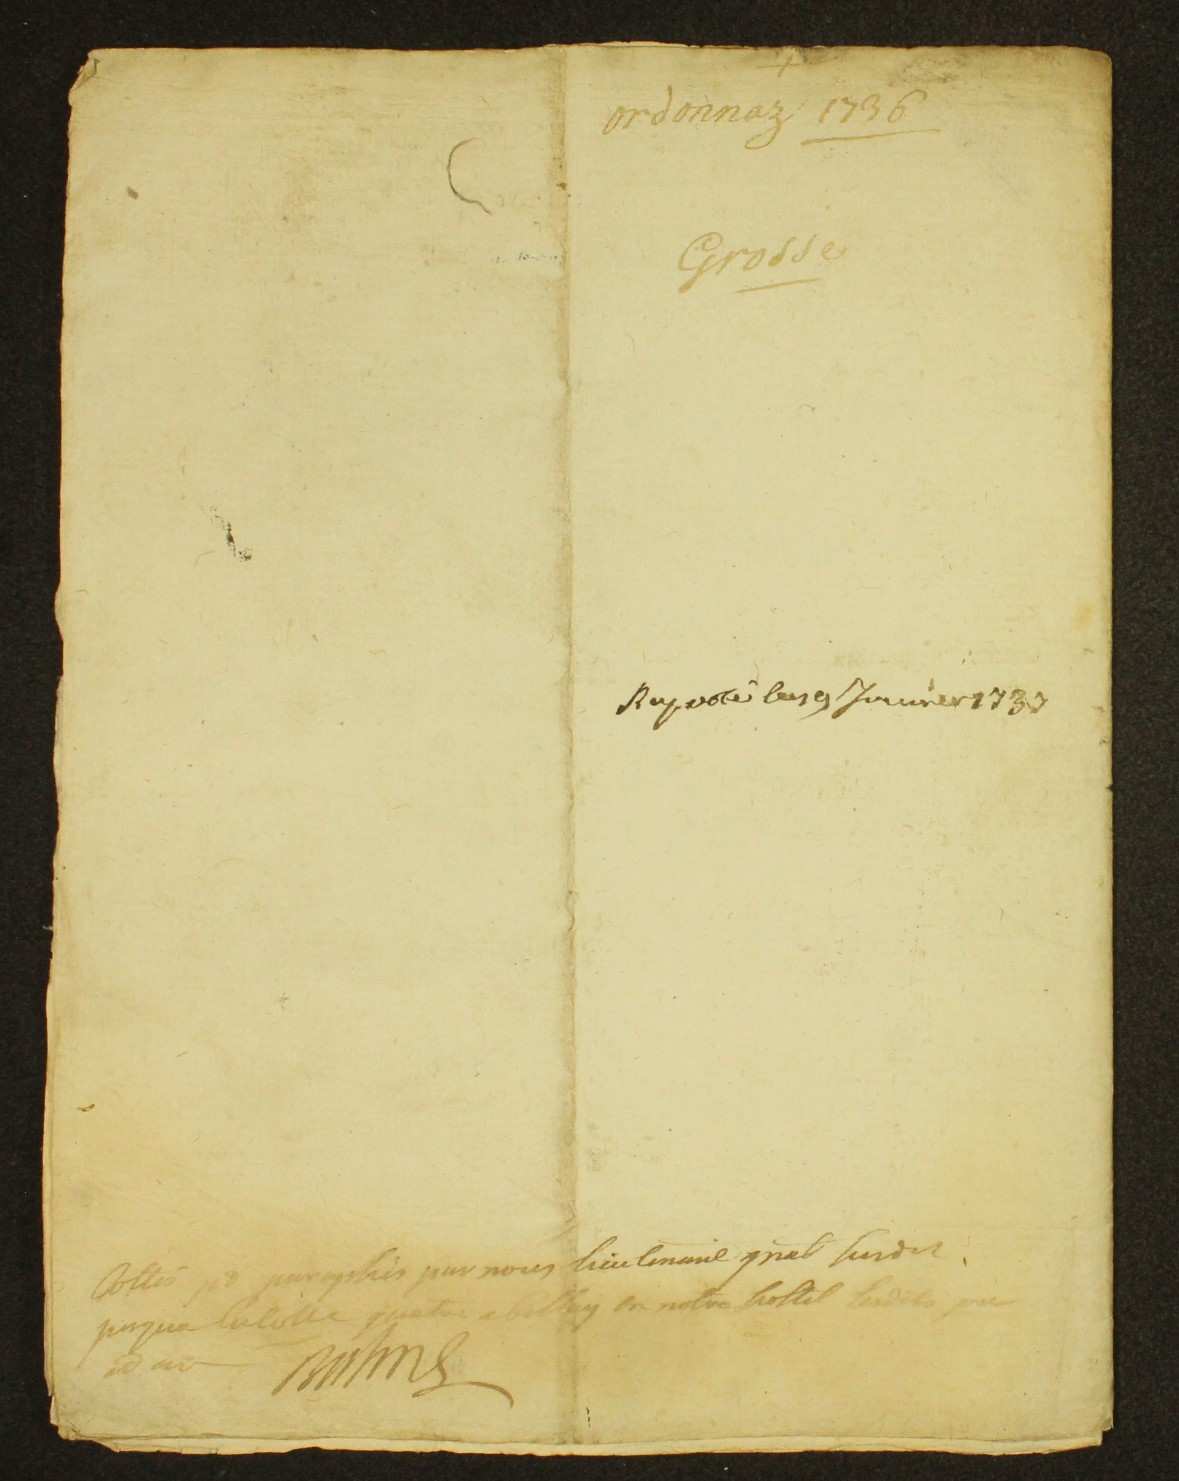 ordonnaz 1736
Grosse
Raporté le 9 Janvier 1737
Cottés et paraphés par nous lieutenant gnal susdit
jusqua la cotte quatre a belley en notre hostel lesdits jour
et an